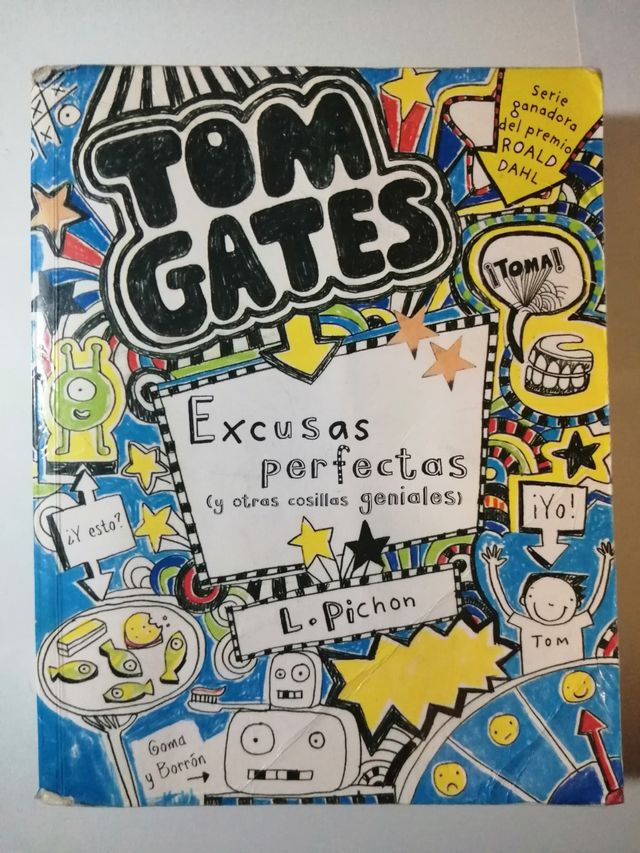 TOM
GATES
serie
ganadora
del premio
ROALD
DAHL
¡TOMA!
Excusas
perfectas
(y otras cosillas geniales)
¿Y esto?
¡Yo!
L. Pichon
TOM
Goma
y Borrón